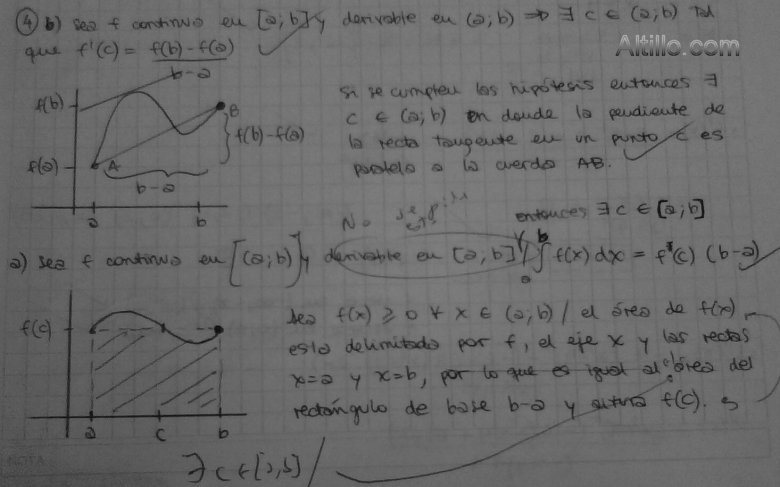 ④ b) sea f continua en [a;b] y derivable en (a;b) ⇒ ∃ c ∈ (a;b) tal
que f'(c) = f(b) - f(a) / b - a
Altillo.com
f(b)
B
f(b) - f(a)
f(a)
A
b - a
a b
Si se cumplen las hipótesis entonces ∃
c ∈ (a;b) en donde la pendiente de
la recta tangente en un punto c es
paralela a la cuerda AB.
No se pide
entonces ∃ c ∈ [a;b]
a) sea f continua en [(a;b)] y derivable en [a,b] / ∫ₐᵇ f(x) dx = f(c) (b-a)
f(c)
a c b
Sea f(x) ≥ 0 ∀ x ∈ (a;b) / el área de f(x)
esta delimitado por f, el eje x y las rectas
x=a y x=b, por lo que es igual al área del
rectángulo de base b-a y altura f(c).
∃ c ∈ [a,b] /
NOTA